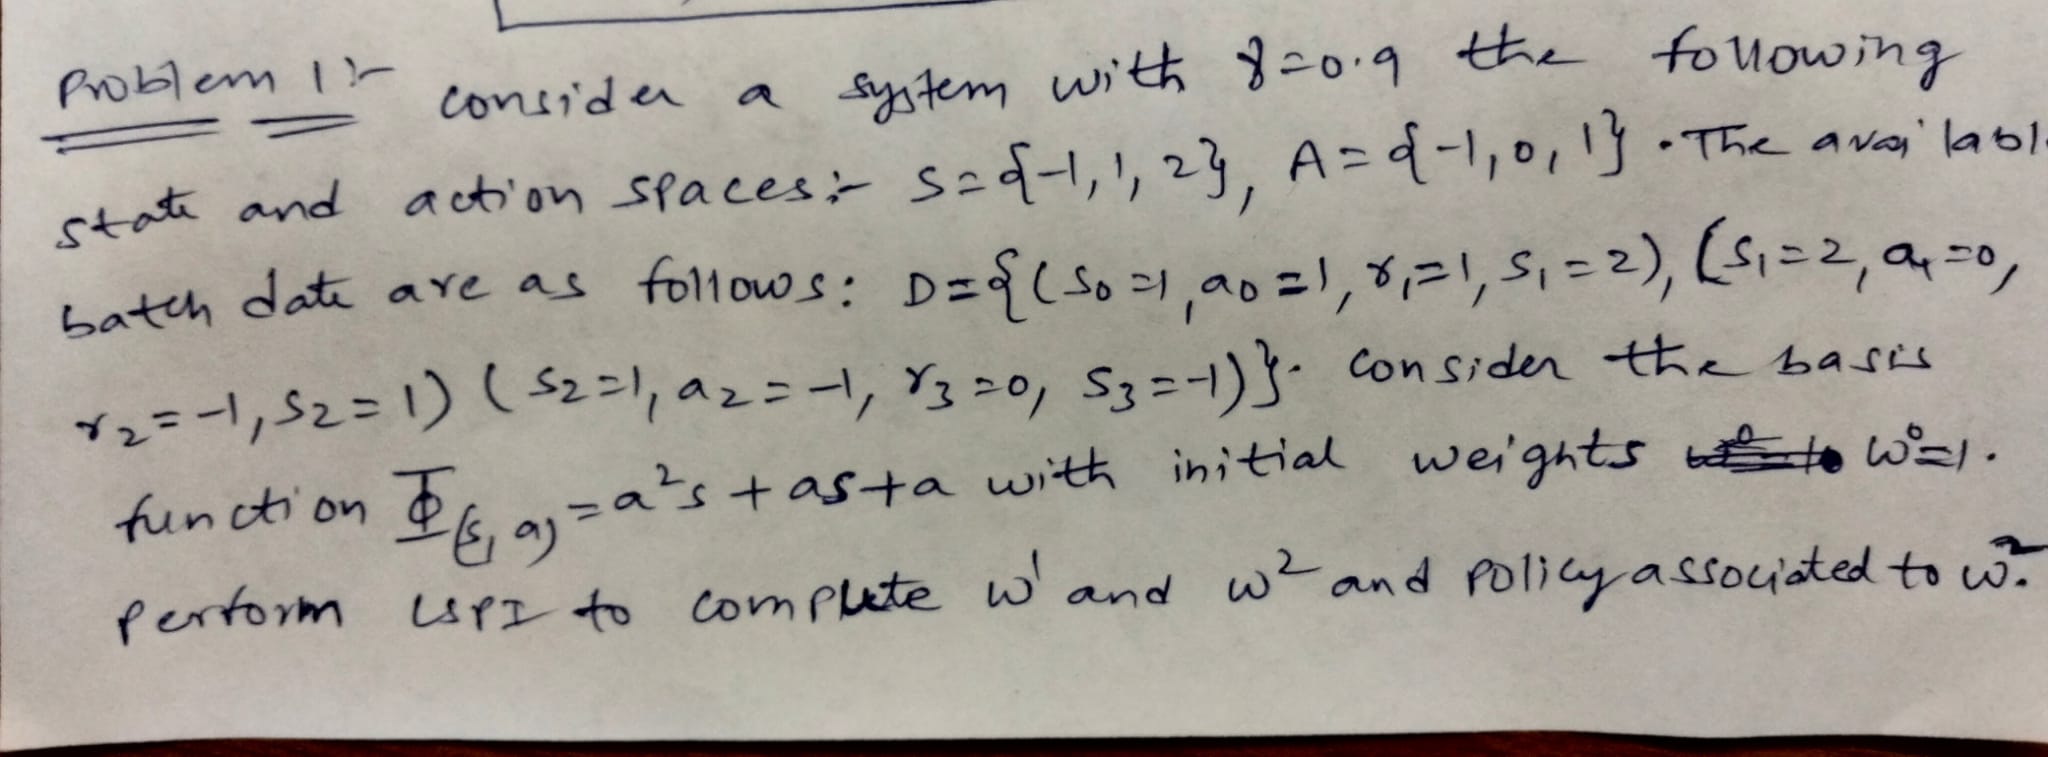 Problem 1:- consider a system with γ=0.9 the following
state and action spaces:- S={-1,1,2}, A={-1,0,1}. The availabl
batch date are as follows: D={(S0=1,a0=1,r1=1,S1=2),(S1=2,a1=0,
r2=-1,S2=1)(S2=1,a2=-1,r3=0,S3=-1)}. Consider the basis
function Φ(s,a)=a²s+as+a with initial weights W⁰=1.
Perform LSPI to complete w¹ and w² and policy associated to w².